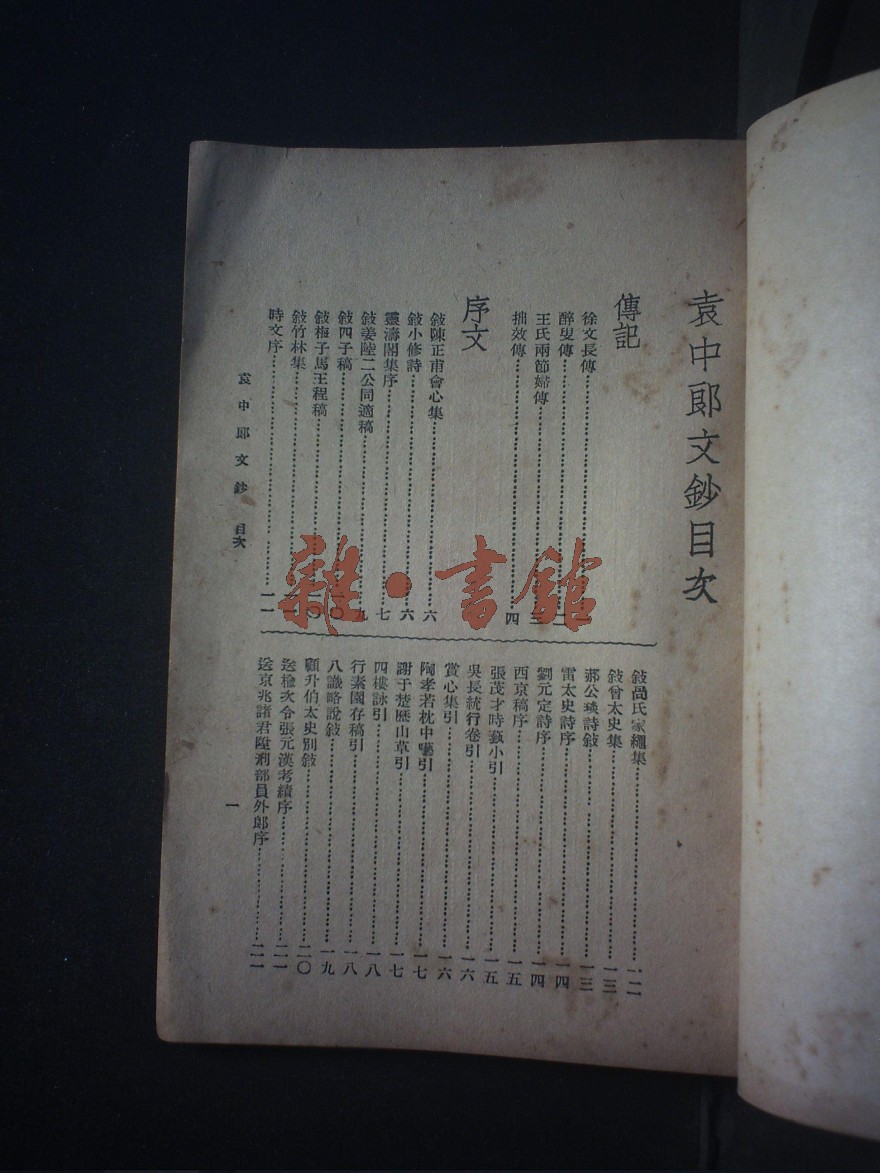 袁中郎文鈔目次
傳記
徐文長傳
醉叟傳……二
王氏兩節婦傳……三
拙效傳……四
序文
敍陳正甫會心集……六
敍小修詩……六
雪濤閣集序……七
敍姜陸二公同適稿……九
敍四子稿……一〇
敍梅子馬王程稿……一〇
敍竹林集……一一
時文序……一一
敍咼氏家繩集……一二
敍曾太史集……一三
郝公琰詩敍……一三
雷太史詩序……一四
劉元定詩序……一四
西京稿序……一五
張茂才時藝小引……一五
吳長統行卷引……一六
賞心集引……一六
陶孝若枕中囈引……一七
謝于楚歷山草引……一七
四樓詠引……一八
行素園存稿引……一八
八識略說敍……一九
顧升伯太史別敍……二〇
送楡次令張元漢考績序……二一
送京兆諸君陞刑部員外郎序……二一
袁中郎文鈔 目次
一
雜·書館